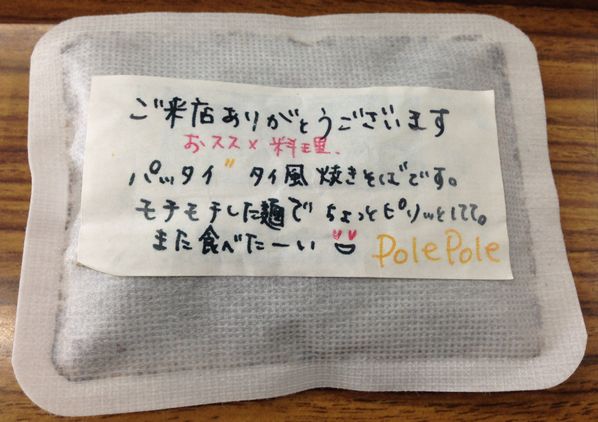 ご来店ありがとうございます
おススメ料理、
パッタイ" タイ風焼きそばです。
モチモチした麺で ちょっとピリッとしてて。
また食べたーい PolePole